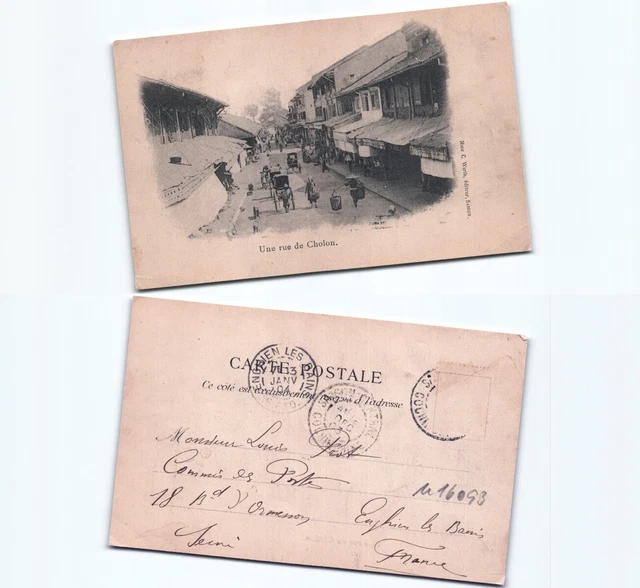 Une rue de Cholon.
Mme C. Wirth, éditeur, Saïgon.
CARTE POSTALE
Ce côté est exclusivement réservé à l'adresse
ENGHIEN LES BAINS
3
1 JANV
04
SAIGON
DEC
Monsieur Louis
Commis des Postes
18 Bd d'Ormesson
Enghien les Bains
Seine
France
u16093